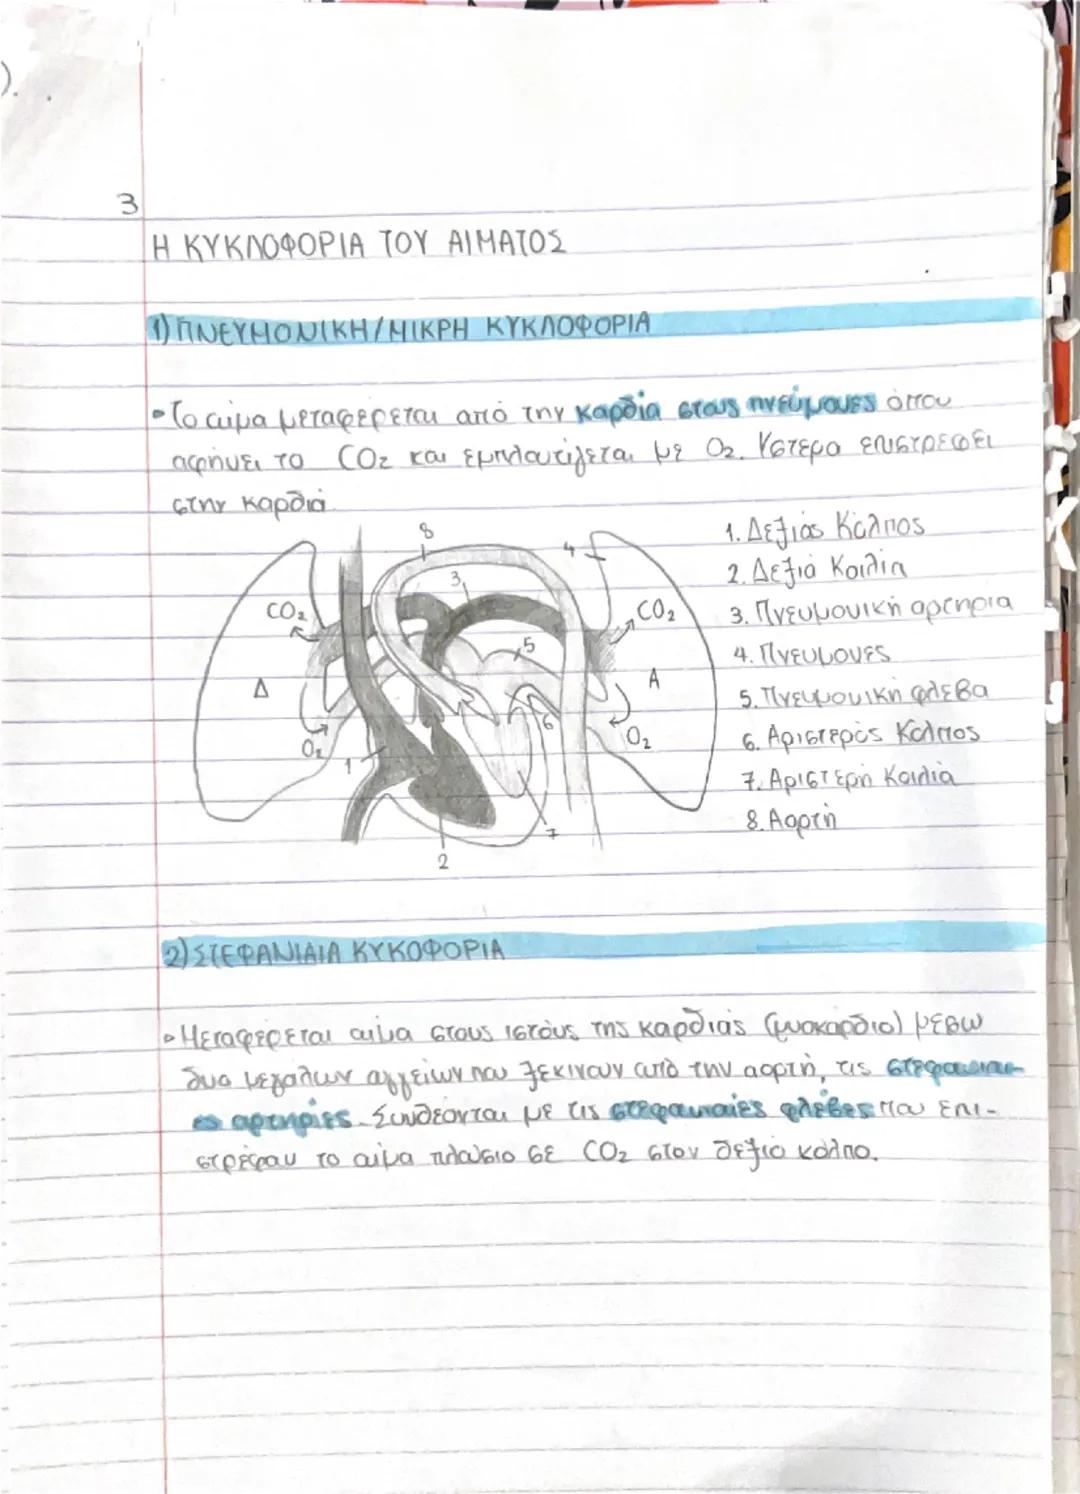 3
Η ΚΥΚΛΟΦΟΡΙΑ ΤΟΥ ΑΙΜΑΤΟΣ
1) ΠΝΕΥΜΟΝΙΚΗ/ΜΙΚΡΗ ΚΥΚΛΟΦΟΡΙΑ
• Το αιμα μεταφερεται από την καρδία στους πνεύμονες όπου
αφήνει το CO₂ και εμπλουτιζεται με O₂. Υστερα επιστρεφει
στην καρδιά.
8
4
3
CO₂
CO₂
5
Δ
A
6
O₂
O₂
1
7
2
1. Δεξιός Κόλπος
2. Δεξιά Κοιλία
3. Πνευμονική αρτηρια
4. Πνευμονες
5. Πνευμονική φλεβα
6. Αριστερός Κόλπος
7. Αριστερή Κοιλιά
8. Αορτή
2) ΣΤΕΦΑΝΙΑΙΑ ΚΥΚΟΦΟΡΙΑ
• Μεταφέρεται αιμα στους ιστούς της καρδιάς (μυοκάρδιο) μεσω
δυο μεγαλων αγγείων που ξεκινουν από την αορτή, τις στεφανιαι-
ες αρτηρίες. Συνδέονται με τις στεφανιαιές φλέβες που επι-
στρέφου το αιμα πλούσιο σε CO₂ στον δεξιό κόλπο.